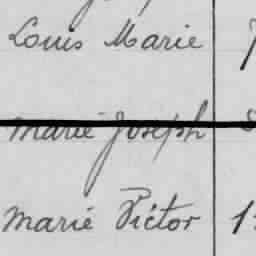 Louis Marie
Marie Joseph
Marie Victor